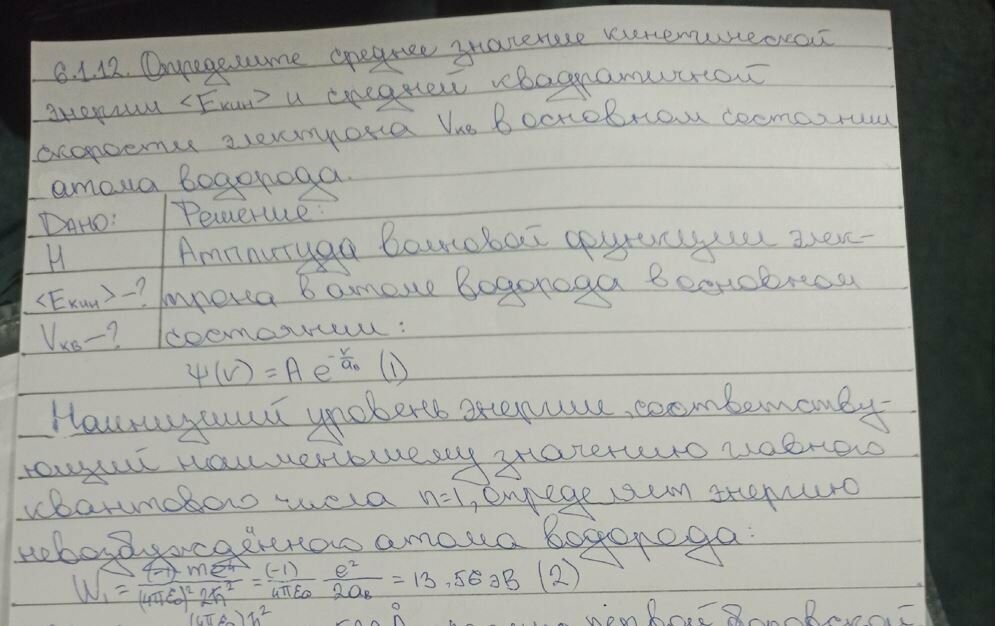 6.1.12. Определите среднее значение кинетической
энергии <Eкин> и средней квадратичной
скорости электрона Vкв в основном состоянии
атома водорода.
Дано: Решение:
H Амплитуда волновой функции элек-
<Eкин>-? трона в атоме водорода в основном
Vкв-? состоянии:
ψ(r) = A e^(-r/a₀) (1)
Наинизший уровень энергии, соответству-
ющий наименьшему значению главного
квантового числа n=1, определяет энергию
невозбуждённого атома водорода:
W₁ = (-1) me⁴/((4πε₀)² 2ħ²) = (-1)/(4πε₀) e²/(2a₀) = 13,56 эВ (2)
(4πε₀)ħ² первой боровской